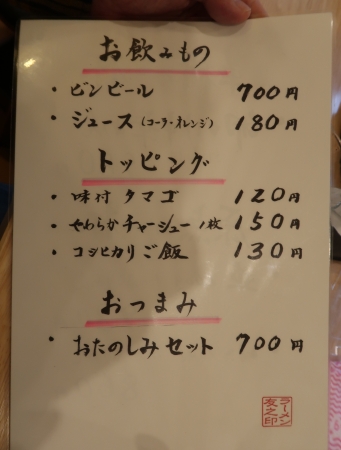 お飲みもの
・ビンビール 700円
・ジュース(コーラ・オレンジ) 180円
トッピング
・味付タマゴ 120円
・やわらかチャーシュー1枚 150円
・コシヒカリご飯 130円
おつまみ
・おたのしみセット 700円
ラーメン
友之印